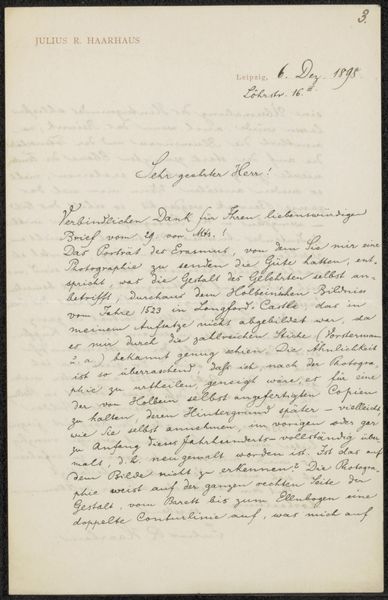 3.
JULIUS R. HAARHAUS
Leipzig, 6. Dez. 1898
Löhrstr. 16.II
Sehr geehrter Herr!
Verbindlichen Dank für Ihren liebenswürdigen
Brief vom 29. vor. Mts.!
Das Porträt des Erasmus, von dem Sie mir eine
Photographie zu senden die Güte hatten, ent-
spricht, was die Gestalt des Gelehrten selbst an-
betrifft, durchaus dem Holbeinschen Bildniss
vom Jahre 1523 in Longford Castle, das in
meinem Aufsatze nicht abgebildet war, da
es mir durch die zahlreichen Stiche (Vorsterman
u. a.) bekannt genug schien. Die Ähnlichkeit
ist so überraschend, daß ich, nach der Photogra-
phie zu urtheilen, geneigt wäre, es für eine
der von Holbein selbst angefertigten Copien
zu halten, deren Hintergrund später – vielleicht,
wie Sie selbst annehmen, im vorigen oder gar
zu Anfang dieses Jahrhunderts – vollständig über-
malt, d. h. neugemalt worden ist. Ist das auf
dem Bilde nicht zu erkennen? Die Photogra-
phie weist auf der ganzen rechten Seite der
Gestalt, vom Barett bis zum Ellenbogen eine
doppelte Conturlinie auf, was mich auf